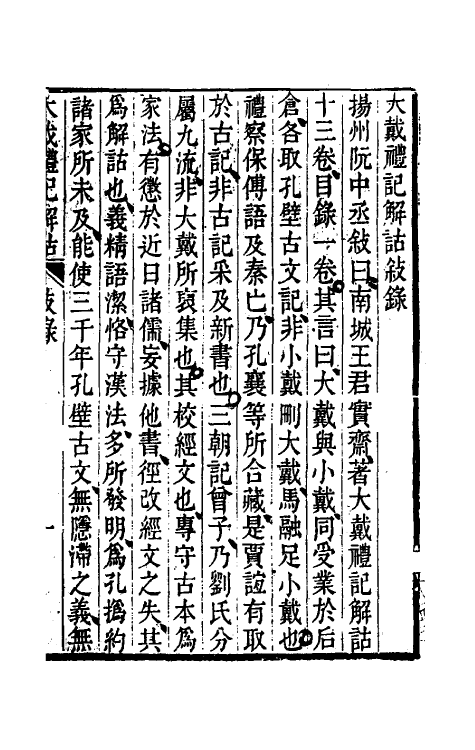 大戴禮記解詁敍錄
揚州阮中丞敍曰南城王君實齋著大戴禮記解詁
十三卷目錄一卷其言曰大戴與小戴同受業於后
倉各取孔壁古文記非小戴刪大戴馬融足小戴也
禮察保傅語及秦亡乃孔襄等所合藏是賈誼有取
於古記非古記采及新書也三朝記曾子乃劉氏分
屬九流非大戴所裒集也其校經文也專守古本爲
家法有懲於近日諸儒妄據他書徑改經文之失其
爲解詁也義精語潔恪守漢法多所發明爲孔撝約
諸家所未及能使三千年孔壁古文無隱滯之義無
大戴禮記解詁 敍錄 一